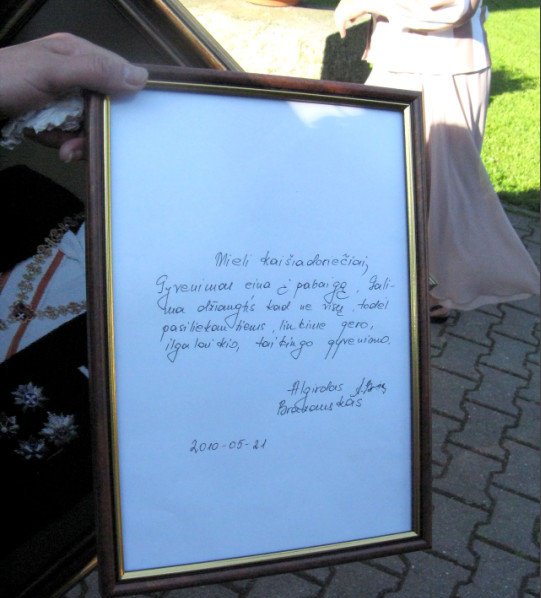 Mieli kaišiadoriečiai,
Gyvenimas eina į pabaigą. Gali-
ma džiaugtis kad ne visų, todėl
pasiliekantiems, linkime gero,
ilgalaikio, taikingo gyvenimo.
Algirdas
Brazauskas
2010-05-21